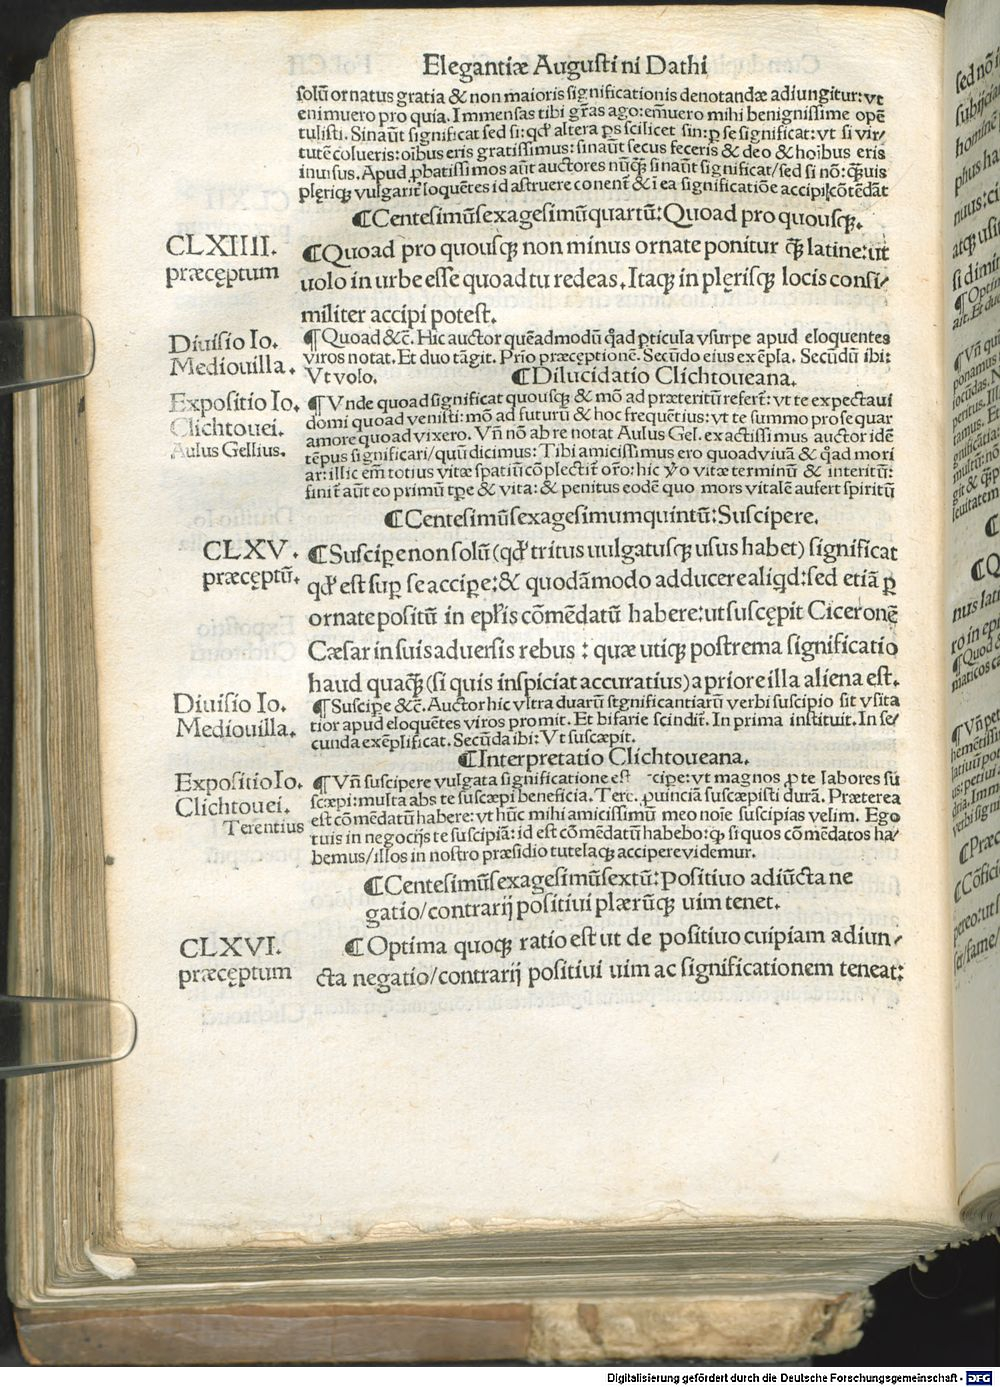 Elegantiæ Augustini Dathi
solũ ornatus gratia & non maioris significationis denotandæ adiungitur: vt
enimuero pro quia. Immensas tibi gr̃as ago: em̃uero mihi benignissime opẽ
tulisti. Sinaũt significat sed si: qđ altera ꝑs scilicet sin: ꝑ se significat: vt si vir⸗
tutẽ colueris: oĩbus eris gratissimus: sinaũt secus feceris & deo & hoĩbus eris
inuisus. Apud ꝓbatissimos aũt auctores nũꝗ̃ sinaũt significat/sed si nõ: ꝗ̃uis
plęriqꝫ vulgarit̃ loquẽtes id astruere conent̃ & ĩ ea significatiõe accipi cõtẽdãt
¶Centesimũsexagesimũquartũ: Quoad pro quousqꝫ.
CLXIIII.
præcęptum
¶Quoad pro quousqꝫ non minus ornate ponitur ꝗ̃ latine: ut
uolo in urbe esse quoad tu redeas. Itaqꝫ in plęrisqꝫ locis consi⸗
militer accipi potest.
Diuisio Io.
Mediouilla.
¶Quoad &c̃. Hic auctor quẽadmodũ q̃ad ꝑticula vsurpe apud eloquentes
viros notat. Et duo tãgit. Prĩo præceptionẽ. Secũdo eius exẽpla. Secũdũ ibi:
Vt volo.
¶Dilucidatio Clichtoueana.
Expositio Io.
Clichtouei.
Aulus Gellius.
¶Vnde quoad significat quousqꝫ & mõ ad præteritũ refert̃: vt te expectaui
domi quoad venisti: mõ ad futurũ & hoc frequẽtius: vt te summo prosequar
amore quoad vixero. Vñ nõ ab re notat Aulus Gel. exactissimus auctor idẽ
tẽpus significari/quũ dicimus: Tibi amicissimus ero quoad viuã & q̃ad mori
ar: illic em̃ totius vitæ spatiũ cõplectit̃ or̃o: hic ỹo vitæ terminũ & interitũ:
finit̃ aũt eo primũ tꝑe & vita: & penitus eodẽ quo mors vitalẽ aufert spiritũ
¶Centesimũsexagesimumquintũ: Suscipere.
CLXV.
præcęptũ.
¶Suscipe non solũ (qđ tritus uulgatusqꝫ usus habet) significat
qđ est suꝑ se accipe: & quodãmodo adducere aliqd: sed etiã ꝑ
ornate positũ in epl̃is cõmẽdatũ habere: ut suscępit Ciceronẽ
Cæsar in suis aduersis rebus: quæ utiqꝫ postrema significatio
haud quaqꝗ̃ (si quis inspiciat accuratius) a priore illa aliena est.
Diuisio Io.
Mediouilla.
¶Suscipe &c̃. Auctor hic vltra duarũ significantiarũ verbi suscipio sit vsita
tior apud eloquẽtes viros promit. Et bifarie scindit̃. In prima instituit. In se⸗
cunda exẽplificat. Secũda ibi: Vt suscæpit.
¶Interpretatio Clichtoueana.
Expositio Io.
Clichtouei.
Terentius
¶Vñ suscipere vulgata significatione est cipe: vt magnos ꝓ te labores sũ
scæpi: multa abs te suscæpi beneficia. Tere. ꝓuinciã suscæpisti durã. Præterea
est cõmẽdatũ habere: vt hũc mihi amicissimũ meo noĩe suscipias velim. Ego
tuis in negocijs te suscipiã: id est cõmẽdatũ habebo: qꝫ si quos cõmẽdatos ha⸗
bemus/illos in nostro præsidio tutelaqꝫ accipere videmur.
¶Centesimũsexagesimũsextũ: Positiuo adiũcta ne
gatio/contrarij positiui plærũqꝫ uim tenet.
CLXVI.
præcęptum
¶Optima quoqꝫ ratio est ut de positiuo cuipiam adiun⸗
cta negatio/contrarij positiui uim ac significationem teneat:
Digitalisierung gefördert durch die Deutsche Forschungsgemeinschaft - DFG